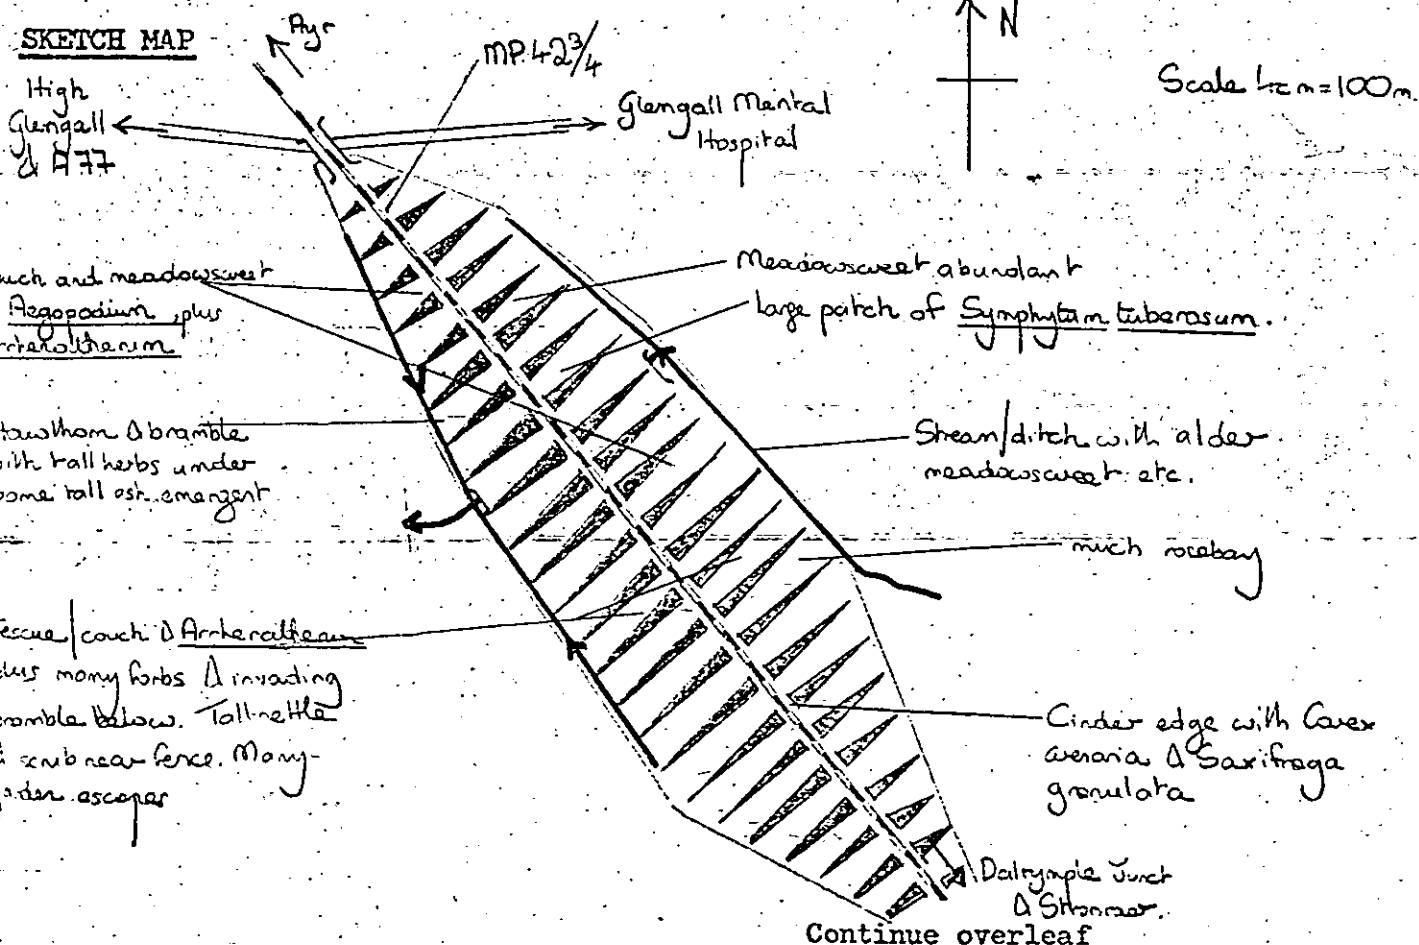 SKETCH MAP
Ayr
MP.42 3/4
N
Scale = 100m.
High
Glengall
& A77
Glengall Mental
Hospital
and meadowsweet
Aegopodium, plus
Meadowsweet abundant
large patch of Symphytum tuberosum.
& bramble
tall herbs under
some tall ash emergent
Stream/ditch with alder
meadowsweet etc.
much rosebay
/couch & Arrhenatherum
many forbs & invading
below. Tall nettle
scrub near fence. Many
escapes
Cinder edge with Carex
arenaria & Saxifraga
granulata
Dalrymple Junct
& Stranraer.
Continue overleaf